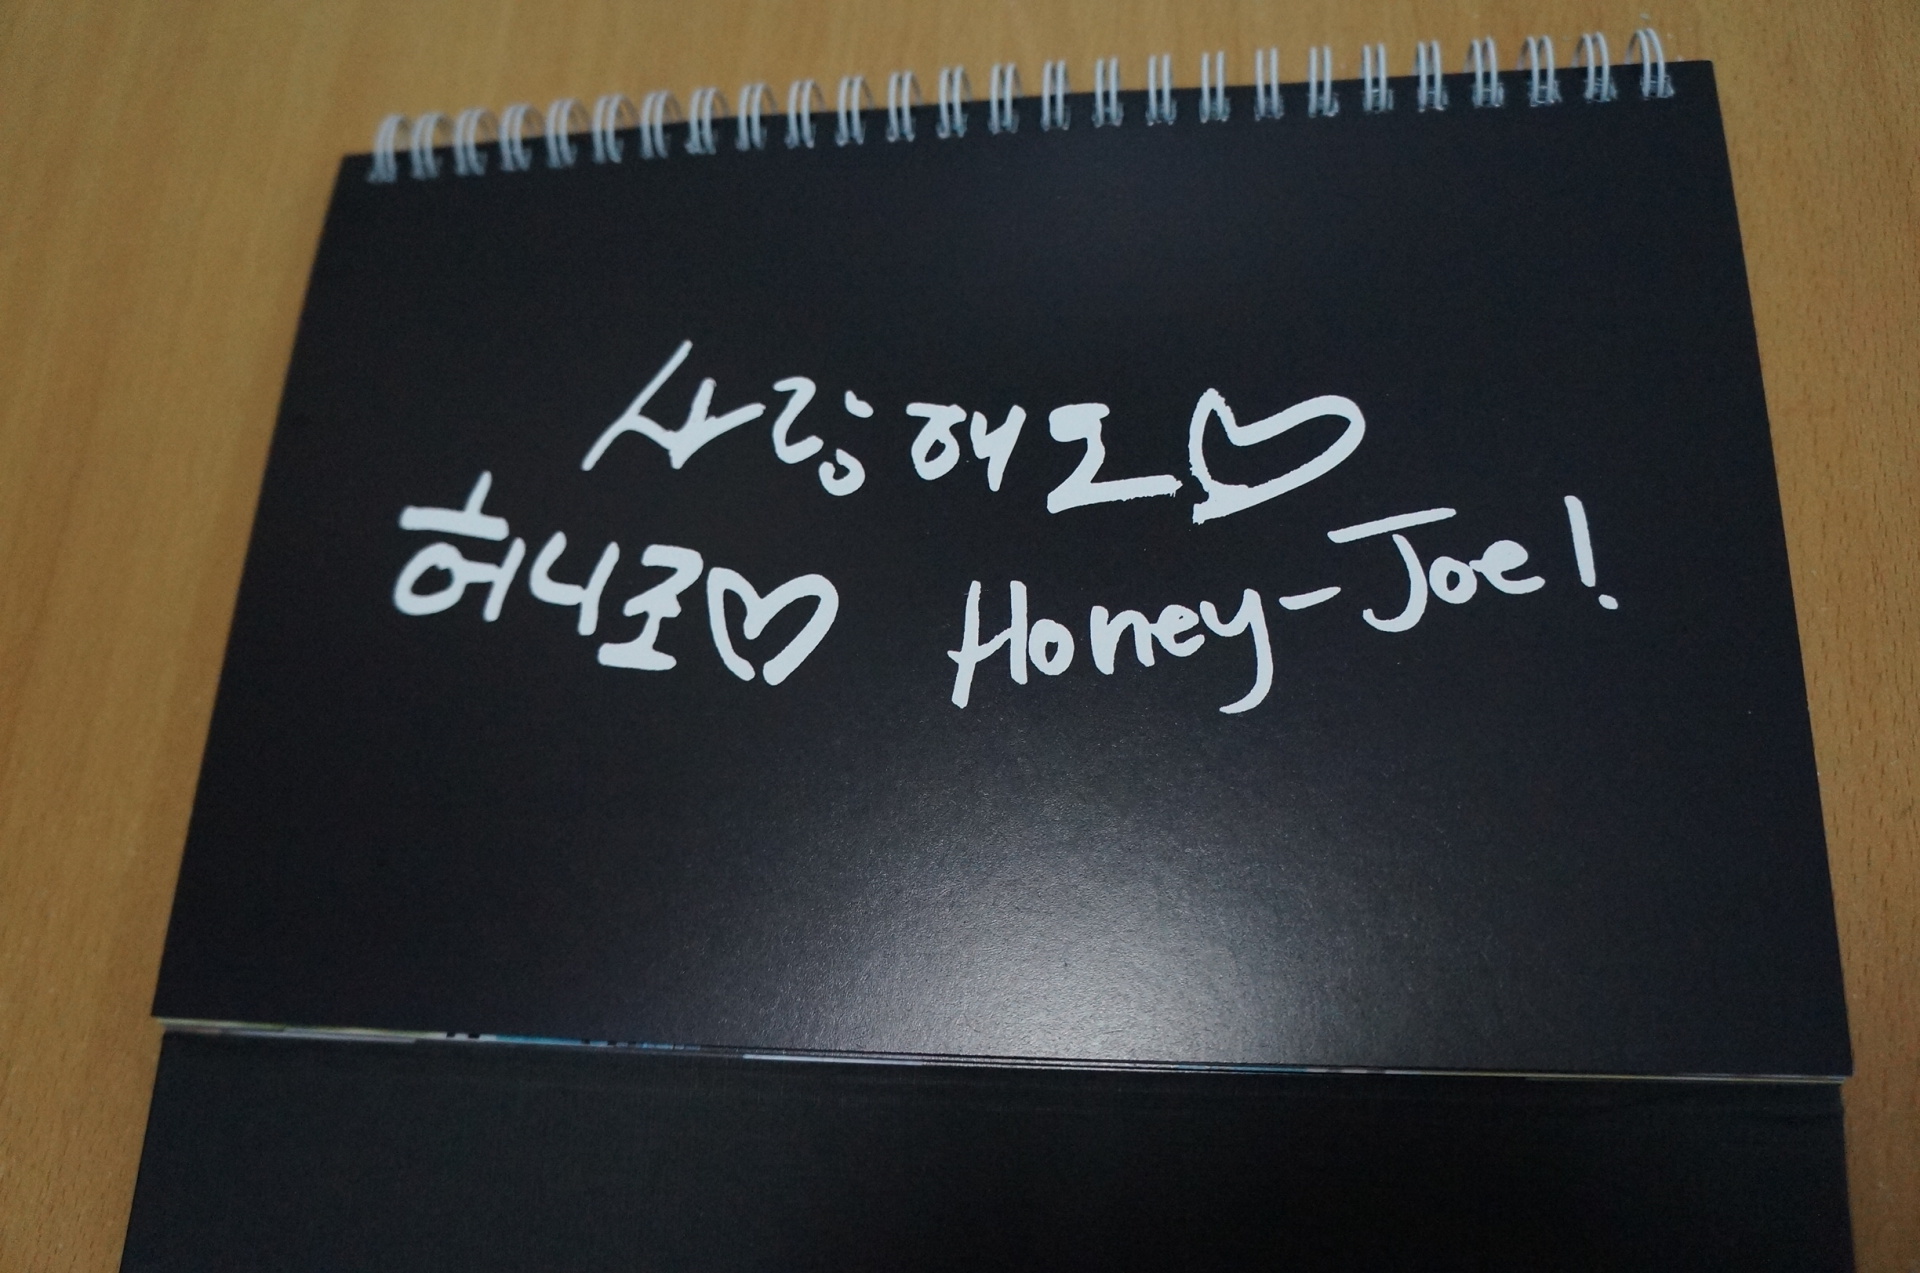 사랑해요♡
허니죠♡ Honey-Joe!